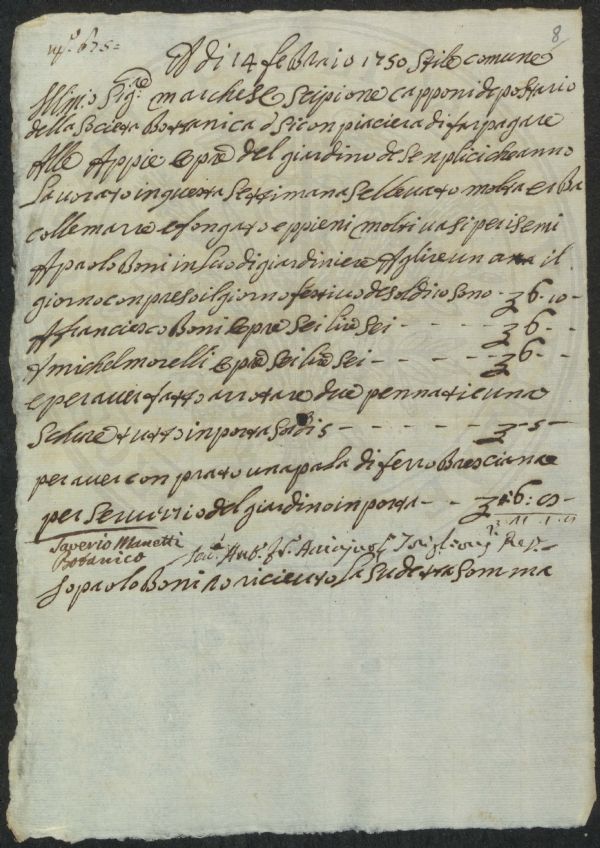 8
A di 14 febraio 1750 stile comune
Illmo Sigre marchese scipione capponi depositario
della Societa Bottanica d si conpiacera di far pagare
Alle Appie opre del giardino de senplici che anno
Lavorato in questa settimana se llevato molta erba
colle marre e fongato e ppieni molti vasi per i semi
A paolo Boni in luo di giardiniere A glire un il
giorno conpreso il giorno festivo de soldi sono - 6 - 10 -
A francescco Boni opre sei lire sei - - - - - 6 -
A michel morelli opre sei lire sei - - - - - 6 -
e per aver fatto arrotare due pennati e una
schure tutto inporta soldi 5 - - - - - - - 5 -
per aver conprato una pala di ferro Bresciana
per servizzio del giardino inporta - - 6:
Saverio Manetti
Botanico
Io paolo Boni o riceuto la sudetta somma